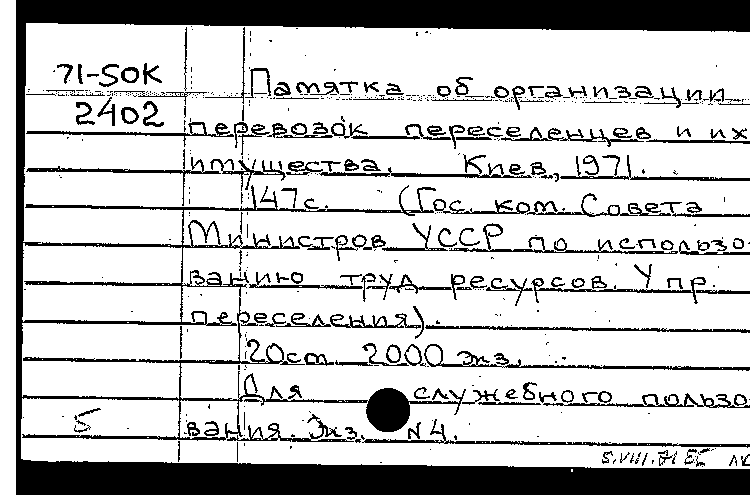 71-50К
2402
Памятка об организации
перевозок переселенцев и их
имущества. Киев, 1971.
147с. (Гос. ком. Совета
Министров УССР по использо-
ванию труд ресурсов. Упр.
переселения).
20см. 2000 экз.
Для служебного пользо-
вания. Экз. N4.
5
5.VIII.71